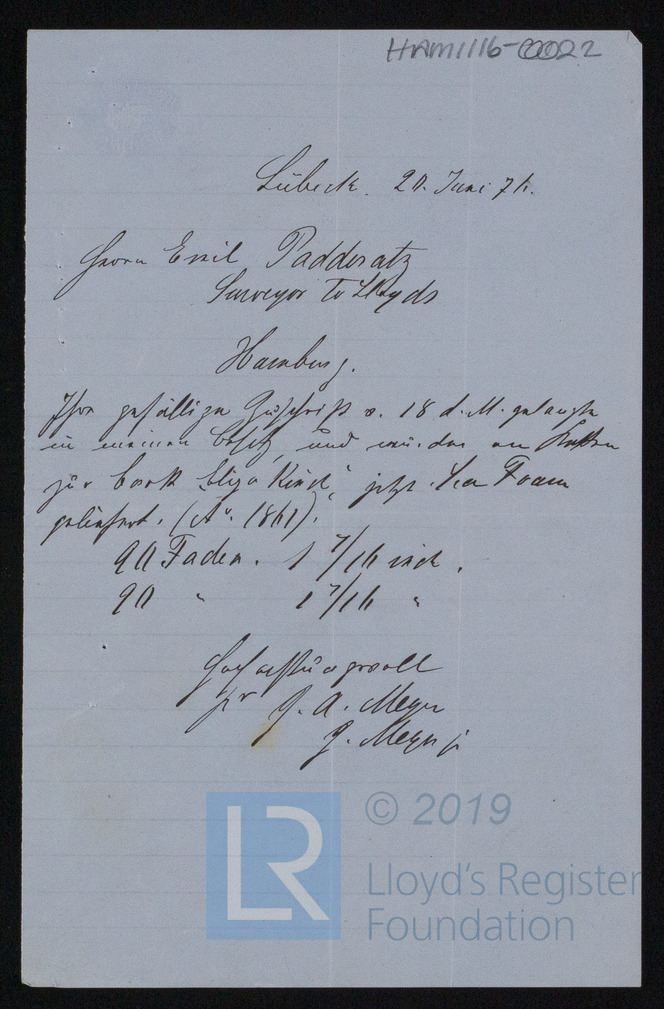 HAM1116-0022
Lübeck. 20. Juni 71.
Herrn Emil Padderatz
Surveyor To Lloyds
Hamburg.
Ihre gefällige Zuschrift v. 18 d. M. gelangte
in meinen Besitz, und wurden an Ketten
zur bark Eliza Kirch, jetzt Sea Foam
geliefert. (Ao. 1861).
90 Faden. 1 7/16 inch.
90 " 1 7/16 "
Hochachtungsvoll
pr J. A. Meyer
J. Meyer jr
LR
© 2019
Lloyd's Register
Foundation